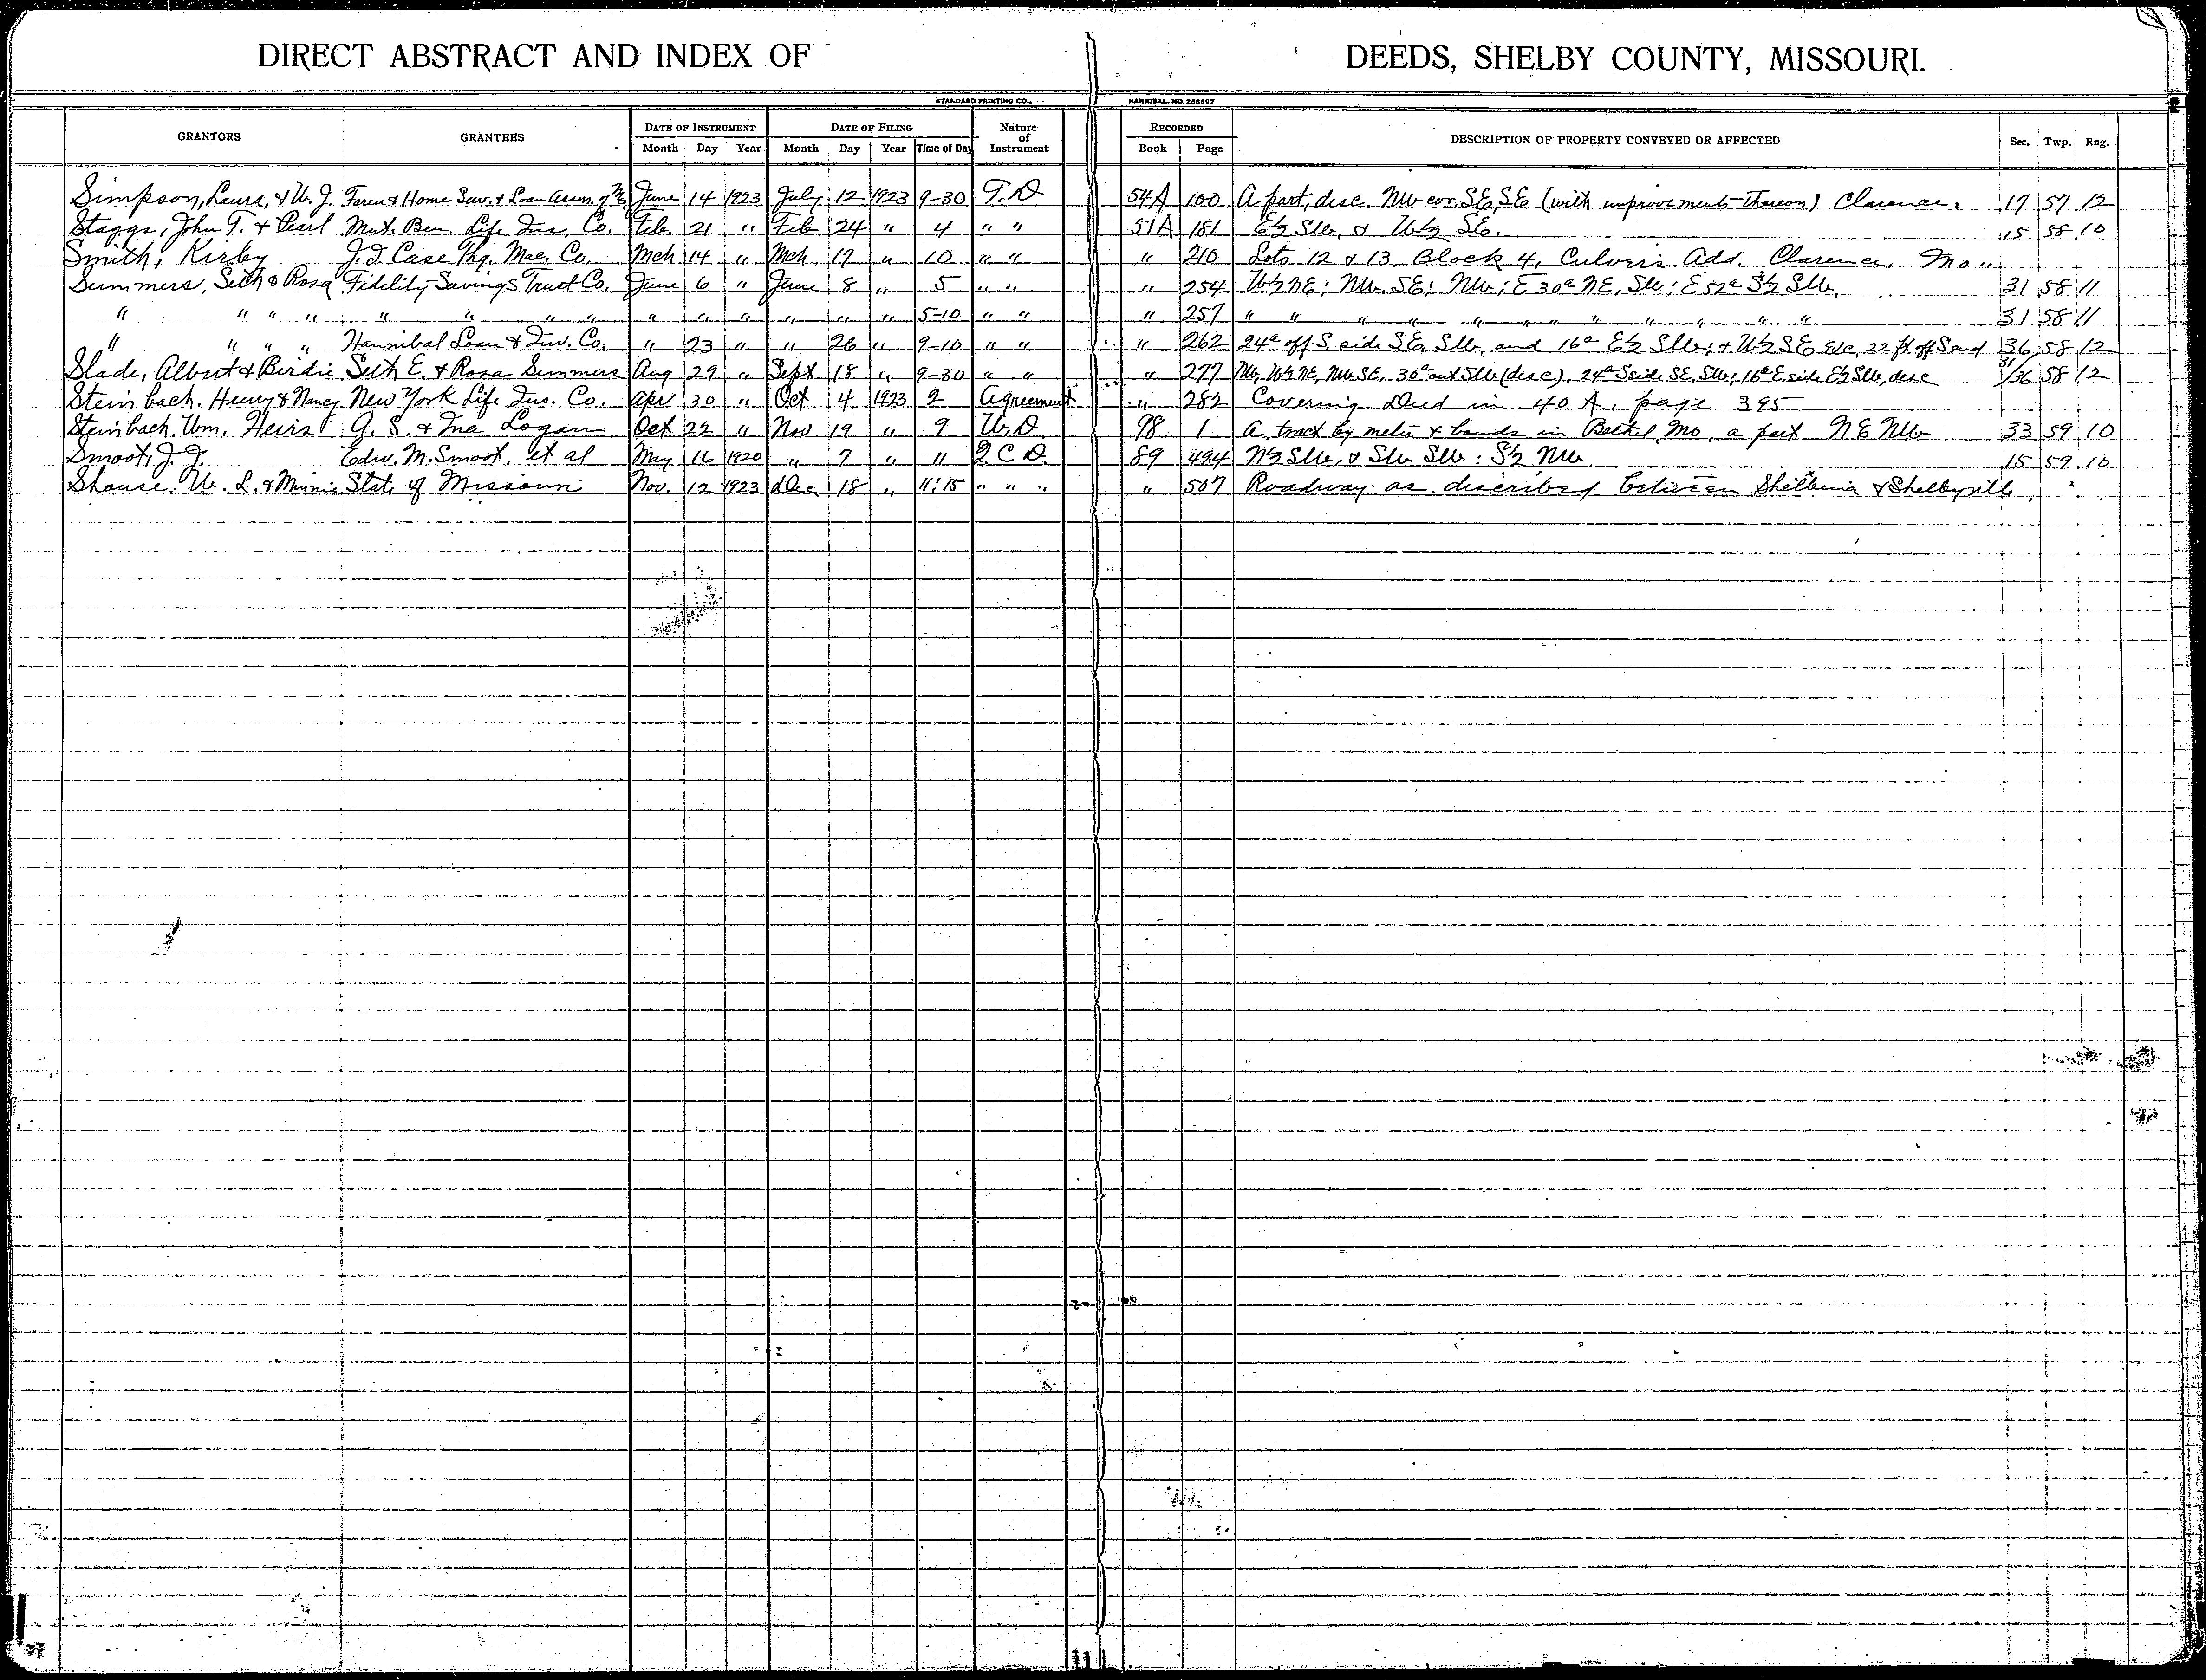 DIRECT ABSTRACT AND INDEX OF DEEDS, SHELBY COUNTY, MISSOURI.
STANDARD PRINTING CO., HANNIBAL, MO 256697
GRANTORS GRANTEES DATE OF INSTRUMENT DATE OF FILING Nature of Instrument RECORDED DESCRIPTION OF PROPERTY CONVEYED OR AFFECTED Sec. Twp. Rng.
Month Day Year Month Day Year Time of Day Book Page
Simpson, Laura, & W. J. Farm & Home Sav. & Loan Assn. of Mo June 14 1923 July 12 1923 9-30 T. D 54A 100 A part, desc. NW cor. SE, SE (with improvements thereon) Clarence. 17 57 12
Staggs, John T. & Pearl Mut. Ben. Life Ins. Co. Feb 21 " Feb 24 " 4 " " 51A 181 E½ SW, & W½ SE. 15 58 10
Smith, Kirby J. I. Case Thg. Mac. Co. Mch 14 " Mch 17 " 10 " " " 210 Lots 12 & 13, Block 4, Culver's Add. Clarence, Mo "
Summers, Seth & Rosa Fidelity Savings Trust Co. June 6 " June 8 " 5 " " " 254 W½ NE; NW. SE; NW; E 30a NE, SW; E 52a S½ SW. 31 58 11
" " " " " " " " " " " " " " 5-10 " " " 257 " " " " " " " " " " " " 31 58 11
" " " " Hannibal Loan & Inv. Co. " 23 " " 26 " 9-10 " " " 262 24a off S side SE, SW, and 16a E½ SW; & W½ SE Etc, 22 ft off S end 36 58 12
Slade, Albert & Birdie Seth E. & Rosa Summers Aug 29 " Sept 18 " 9-30 " " " 277 NW, W½ NE, NW SE, 30a out SW (desc), 24a S side SE, SW; 16a E side E½ SW, desc 31/36 58 12
Steinbach, Henry & Nancy New York Life Ins. Co. Apr 30 " Oct 4 1923 2 Agreement " 282 Covering Deed in 40 A, page 395
Steinbach, Wm, Heirs A. S. & Ina Logan Oct 22 " Nov 19 " 9 W. D 98 1 A tract by metes & bounds in Bethel, Mo, a part NE NW 33 59 10
Smoot, J. J. Edw. M. Smoot, et al May 16 1920 " 7 " 11 Q. C. D. 89 494 N½ SW, & SW SW: S½ NW. 15 59 10
Shouse, W. L. & Minnie State of Missouri Nov. 12 1923 Dec 18 " 11:15 " " " " 507 Roadway as described between Shelbina & Shelbyville